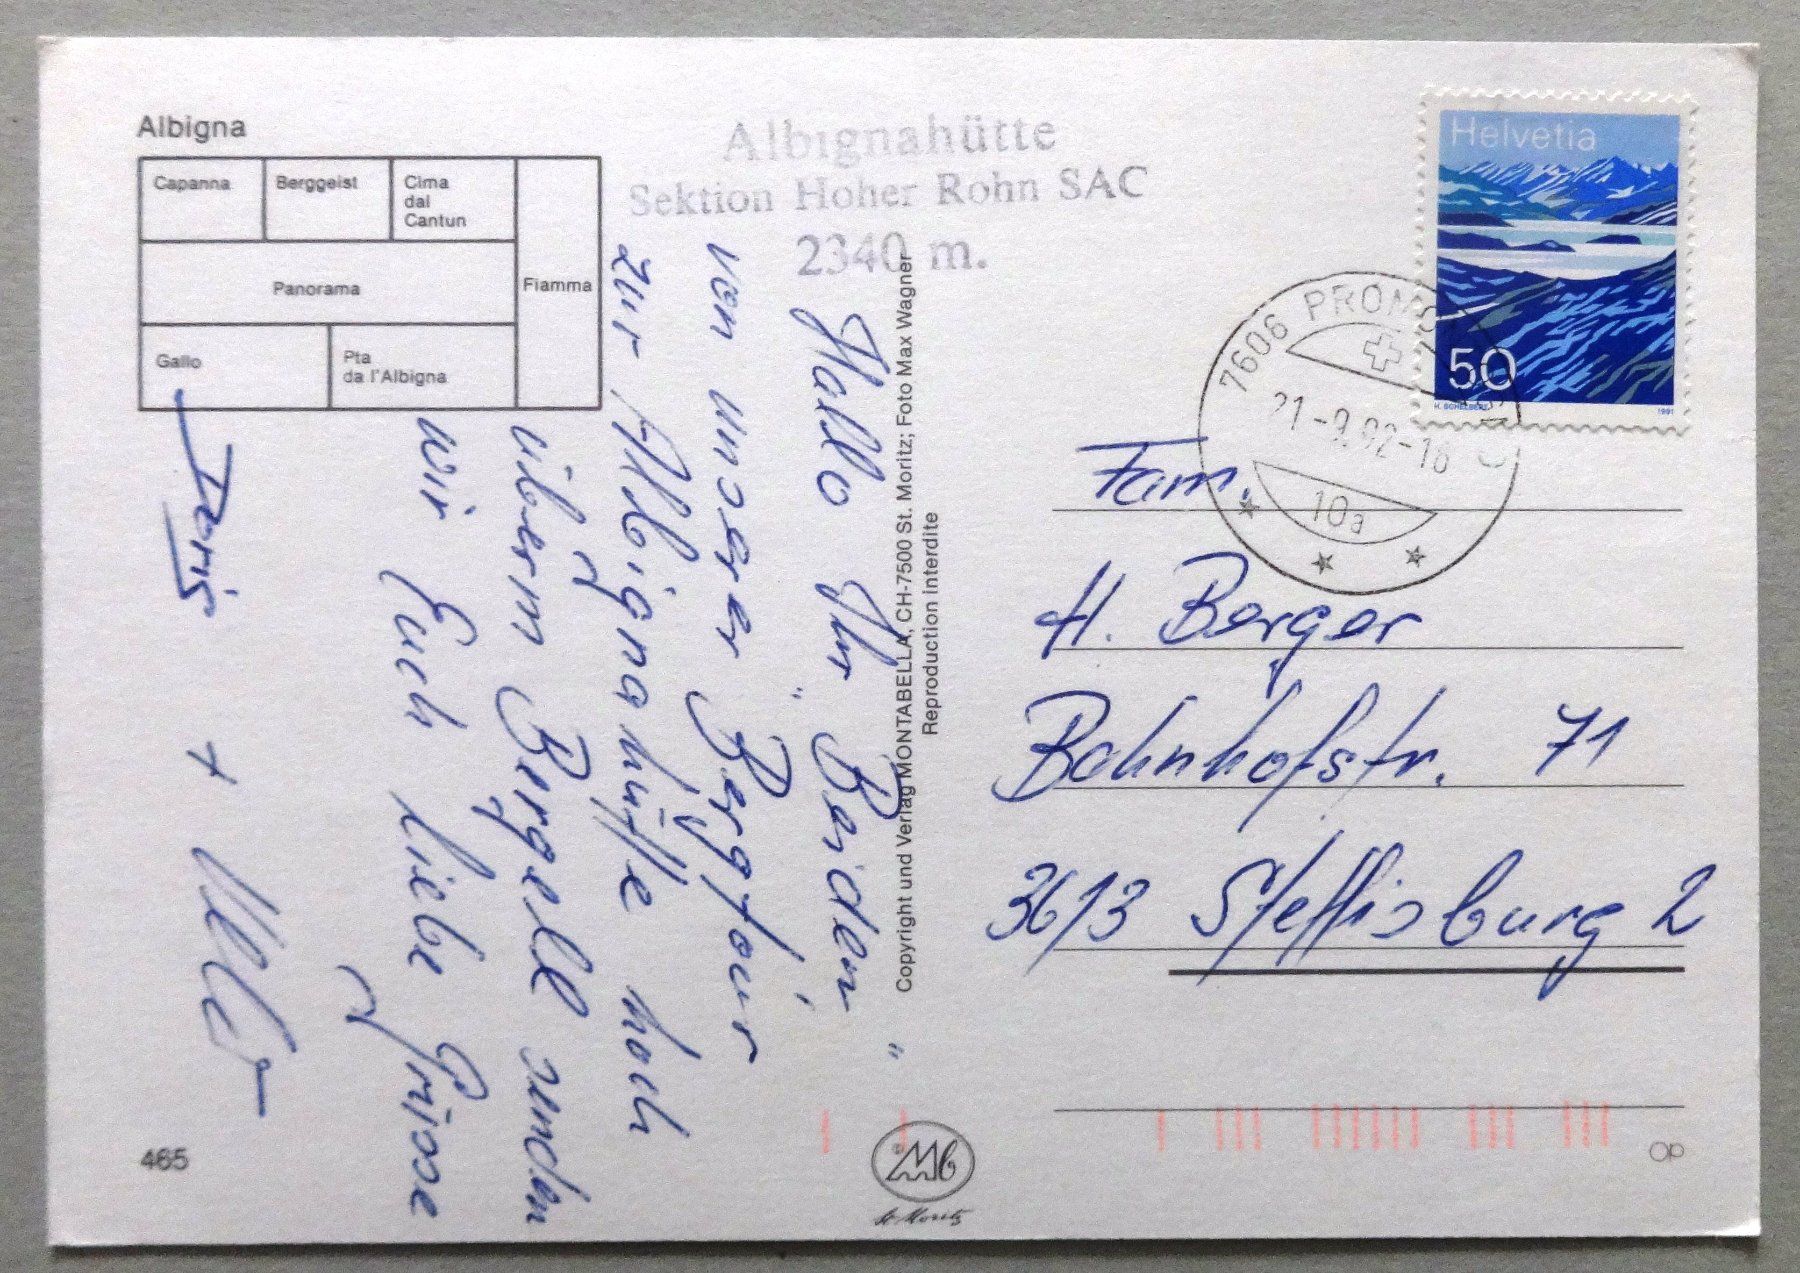 Albigna
Capanna
Berggeist
Cima
dal
Cantun
Panorama
Fiamma
Gallo
Pta
da l'Albigna
Albignahütte
Sektion Hoher Rohn SAC
2340 m.
Hallo Ihr "Beiden"
von unserer Bergtour
zur Albignahütte hoch
überm Bergell senden
wir Euch liebe Grüsse
Doris +
Copyright und Verlag MONTABELLA, CH-7500 St. Moritz; Foto Max Wagner
Reproduction interdite
Helvetia
50
H. SCHELBERT
1991
7606
21-9.92-18
10a
Fam.
H. Berger
Bahnhofstr. 71
3613 Steffisburg 2
465
Mb
St. Moritz